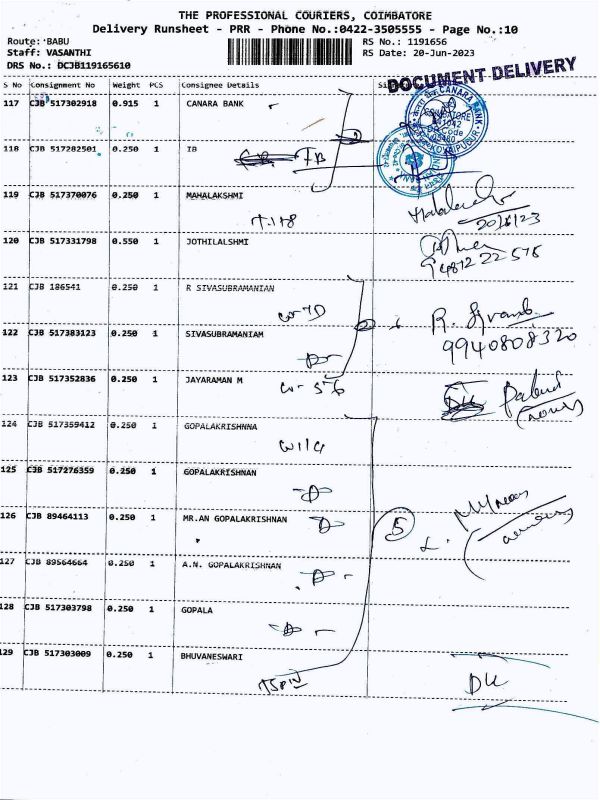 THE PROFESSIONAL COURIERS, COIMBATORE
Delivery Runsheet - PRR - Phone No.:0422-3505555 - Page No.:10
Route: BABU
Staff: VASANTHI
DRS No.: DCJB119165610
RS No.: 1191656
RS Date: 20-Jun-2023
DOCUMENT DELIVERY
S No Consignment No Weight PCS Consignee Details
117 CJB 517302918 0.915 1 CANARA BANK
118 CJB 517282501 0.250 1 IB
IB
119 CJB 517370076 0.250 1 MAHALAKSHMI
20/6/23
120 CJB 517331798 0.550 1 JOTHILALSHMI
121 CJB 186541 0.250 1 R SIVASUBRAMANIAN
R.
122 CJB 517383123 0.250 1 SIVASUBRAMANIAM
9940808320
123 CJB 517352836 0.250 1 JAYARAMAN M
124 CJB 517359412 0.250 1 GOPALAKRISHNNA
125 CJB 517276359 0.250 1 GOPALAKRISHNAN
126 CJB 89464113 0.250 1 MR.AN GOPALAKRISHNAN
5
127 CJB 89564664 0.250 1 A.N. GOPALAKRISHNAN
128 CJB 517303798 0.250 1 GOPALA
129 CJB 517303009 0.250 1 BHUVANESWARI